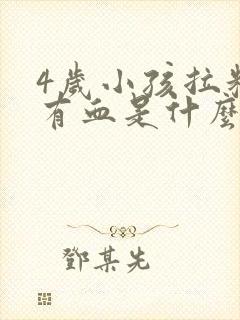 4歲小孩拉粑
有血是什麼
鄧某先